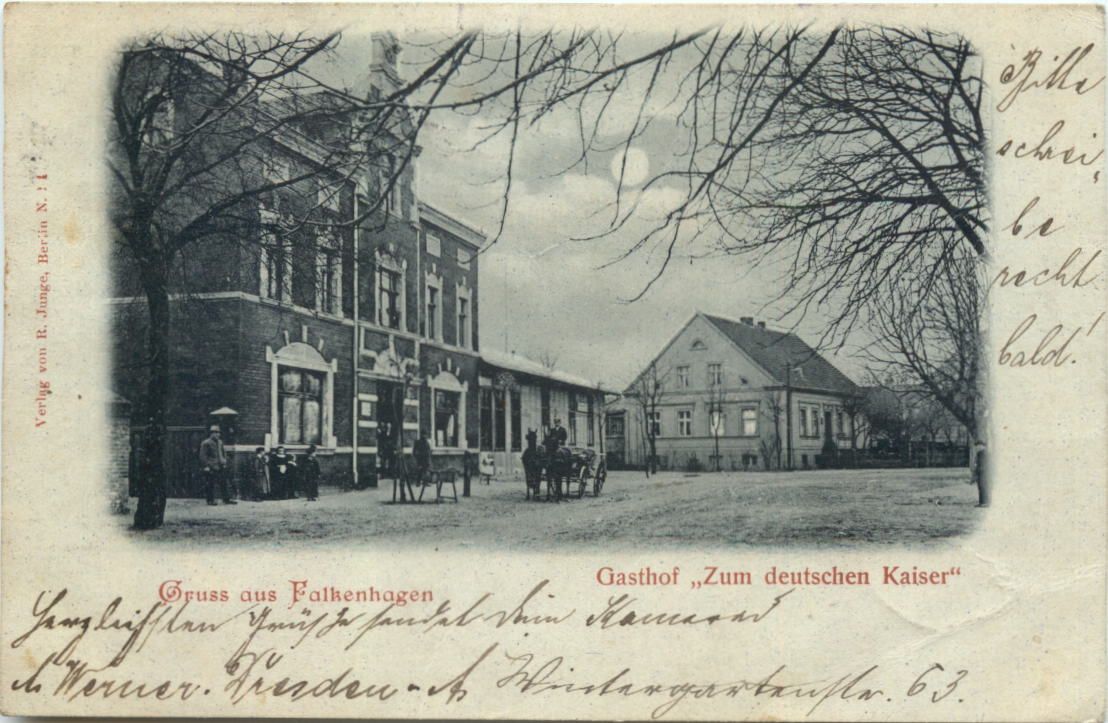 Verlag von R. Junge, Berlin N.
Gruss aus Falkenhagen
Gasthof „Zum deutschen Kaiser“
Herzlichsten Grüsse sendet Dein Kamerad
A. Werner. Dresden-A Wintergartenstr. 63.
Bitte
schrei„
be
recht
bald!